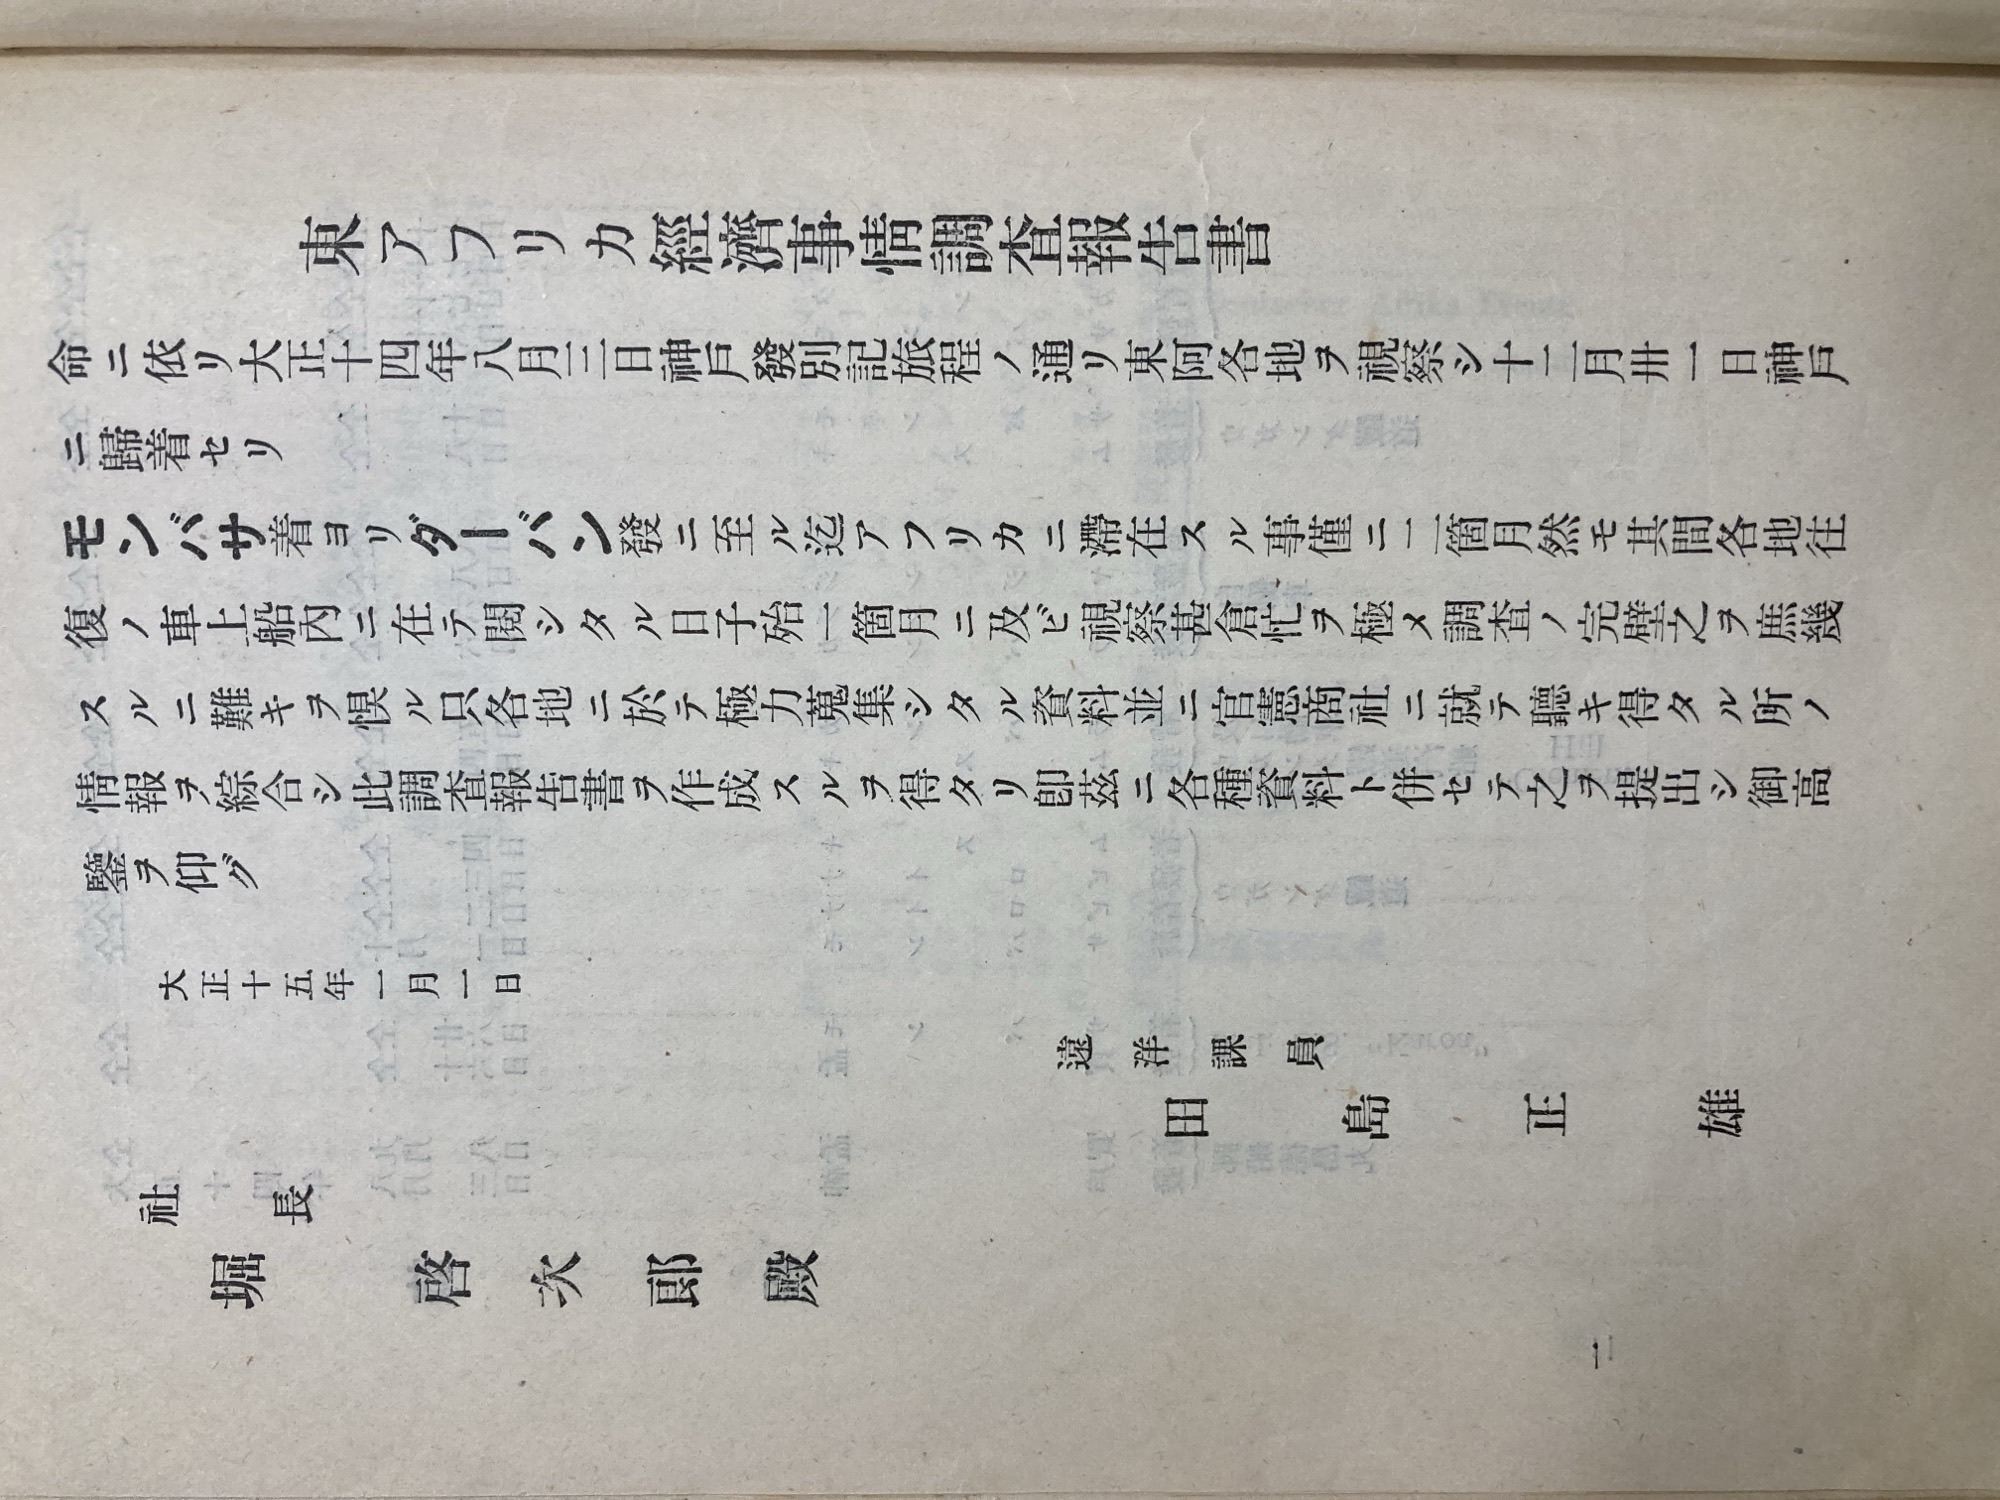 東アフリカ經濟事情調査報告書
命ニ依リ大正十四年八月三日神戸發別記旅程ノ通リ東阿各地ヲ視察シ十二月卅一日神戸
ニ歸着セリ
モンバサ着ヨリダーバン發ニ至ル迄アフリカニ滯在スル事僅ニ二箇月然モ其間各地往
復ノ車上船內ニ在テ閱シタル日子殆一箇月ニ及ビ視察甚倉忙ヲ極メ調査ノ完璧之ヲ庶幾
スルニ難キヲ惧ル只各地ニ於テ極力蒐集シタル資料並ニ官憲商社ニ就テ聽キ得タル所ノ
情報ヲ綜合シ此調査報告書ヲ作成スルヲ得タリ卽茲ニ各種資料ト併セテ之ヲ提出シ御高
鑒ヲ仰グ
大正十五年一月一日
遠洋課員
田島正雄
社長
堀啓次郎殿
一